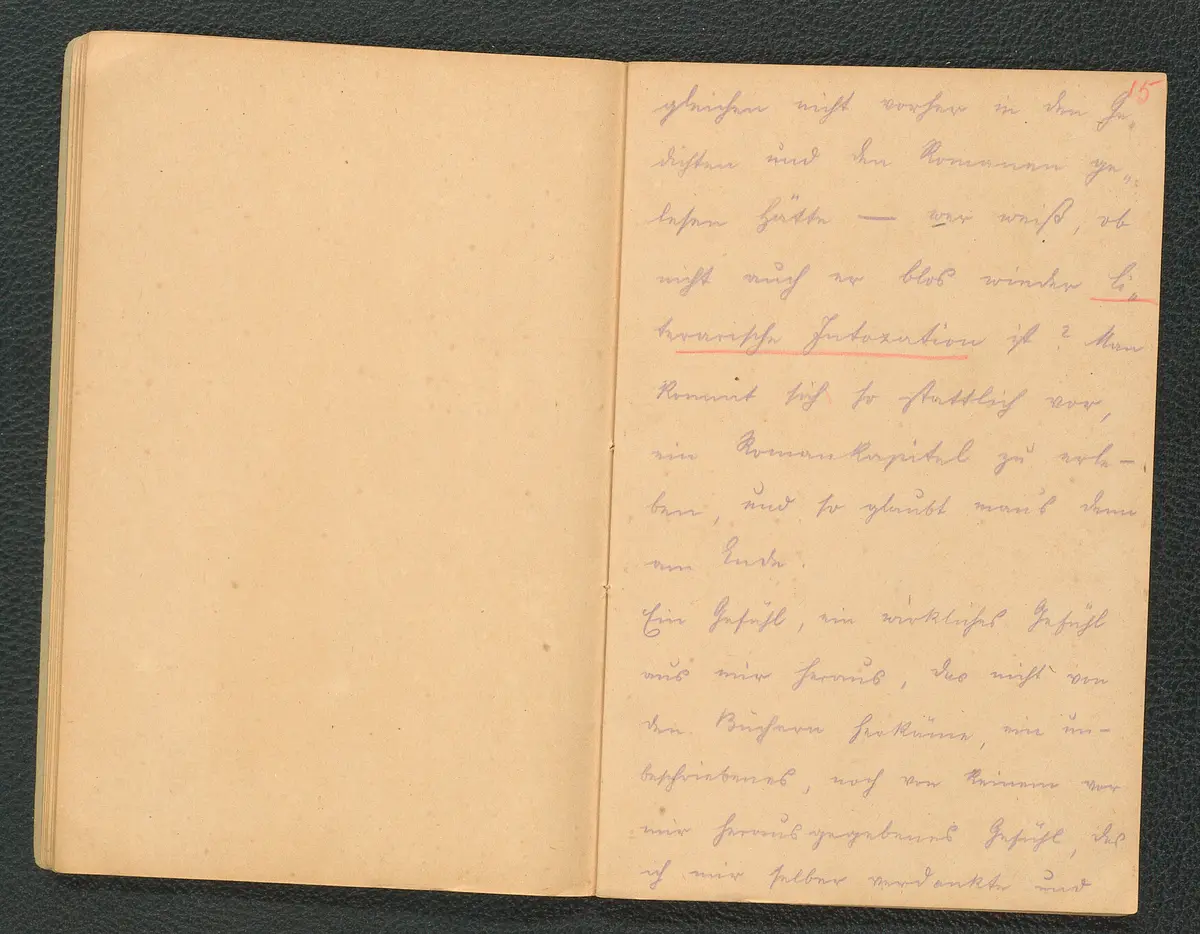 15
gleichen nicht vorher in den Ge„
dichten und den Romanen ge„
lesen hätte — wer weiß, ob
nicht auch er blos wieder li„
terarische Intoxation ist? Man
kommt sich so stattlich vor,
ein Romankapitel zu erle-
ben, und so glaubt man's denn
am Ende.
Ein Gefühl, ein wirkliches Gefühl
aus mir heraus, das nicht von
den Büchern herkäme, ein un-
beschriebenes, noch von keinem vor
mir herausgegebenes Gefühl, das
ich mir selber verdankte und